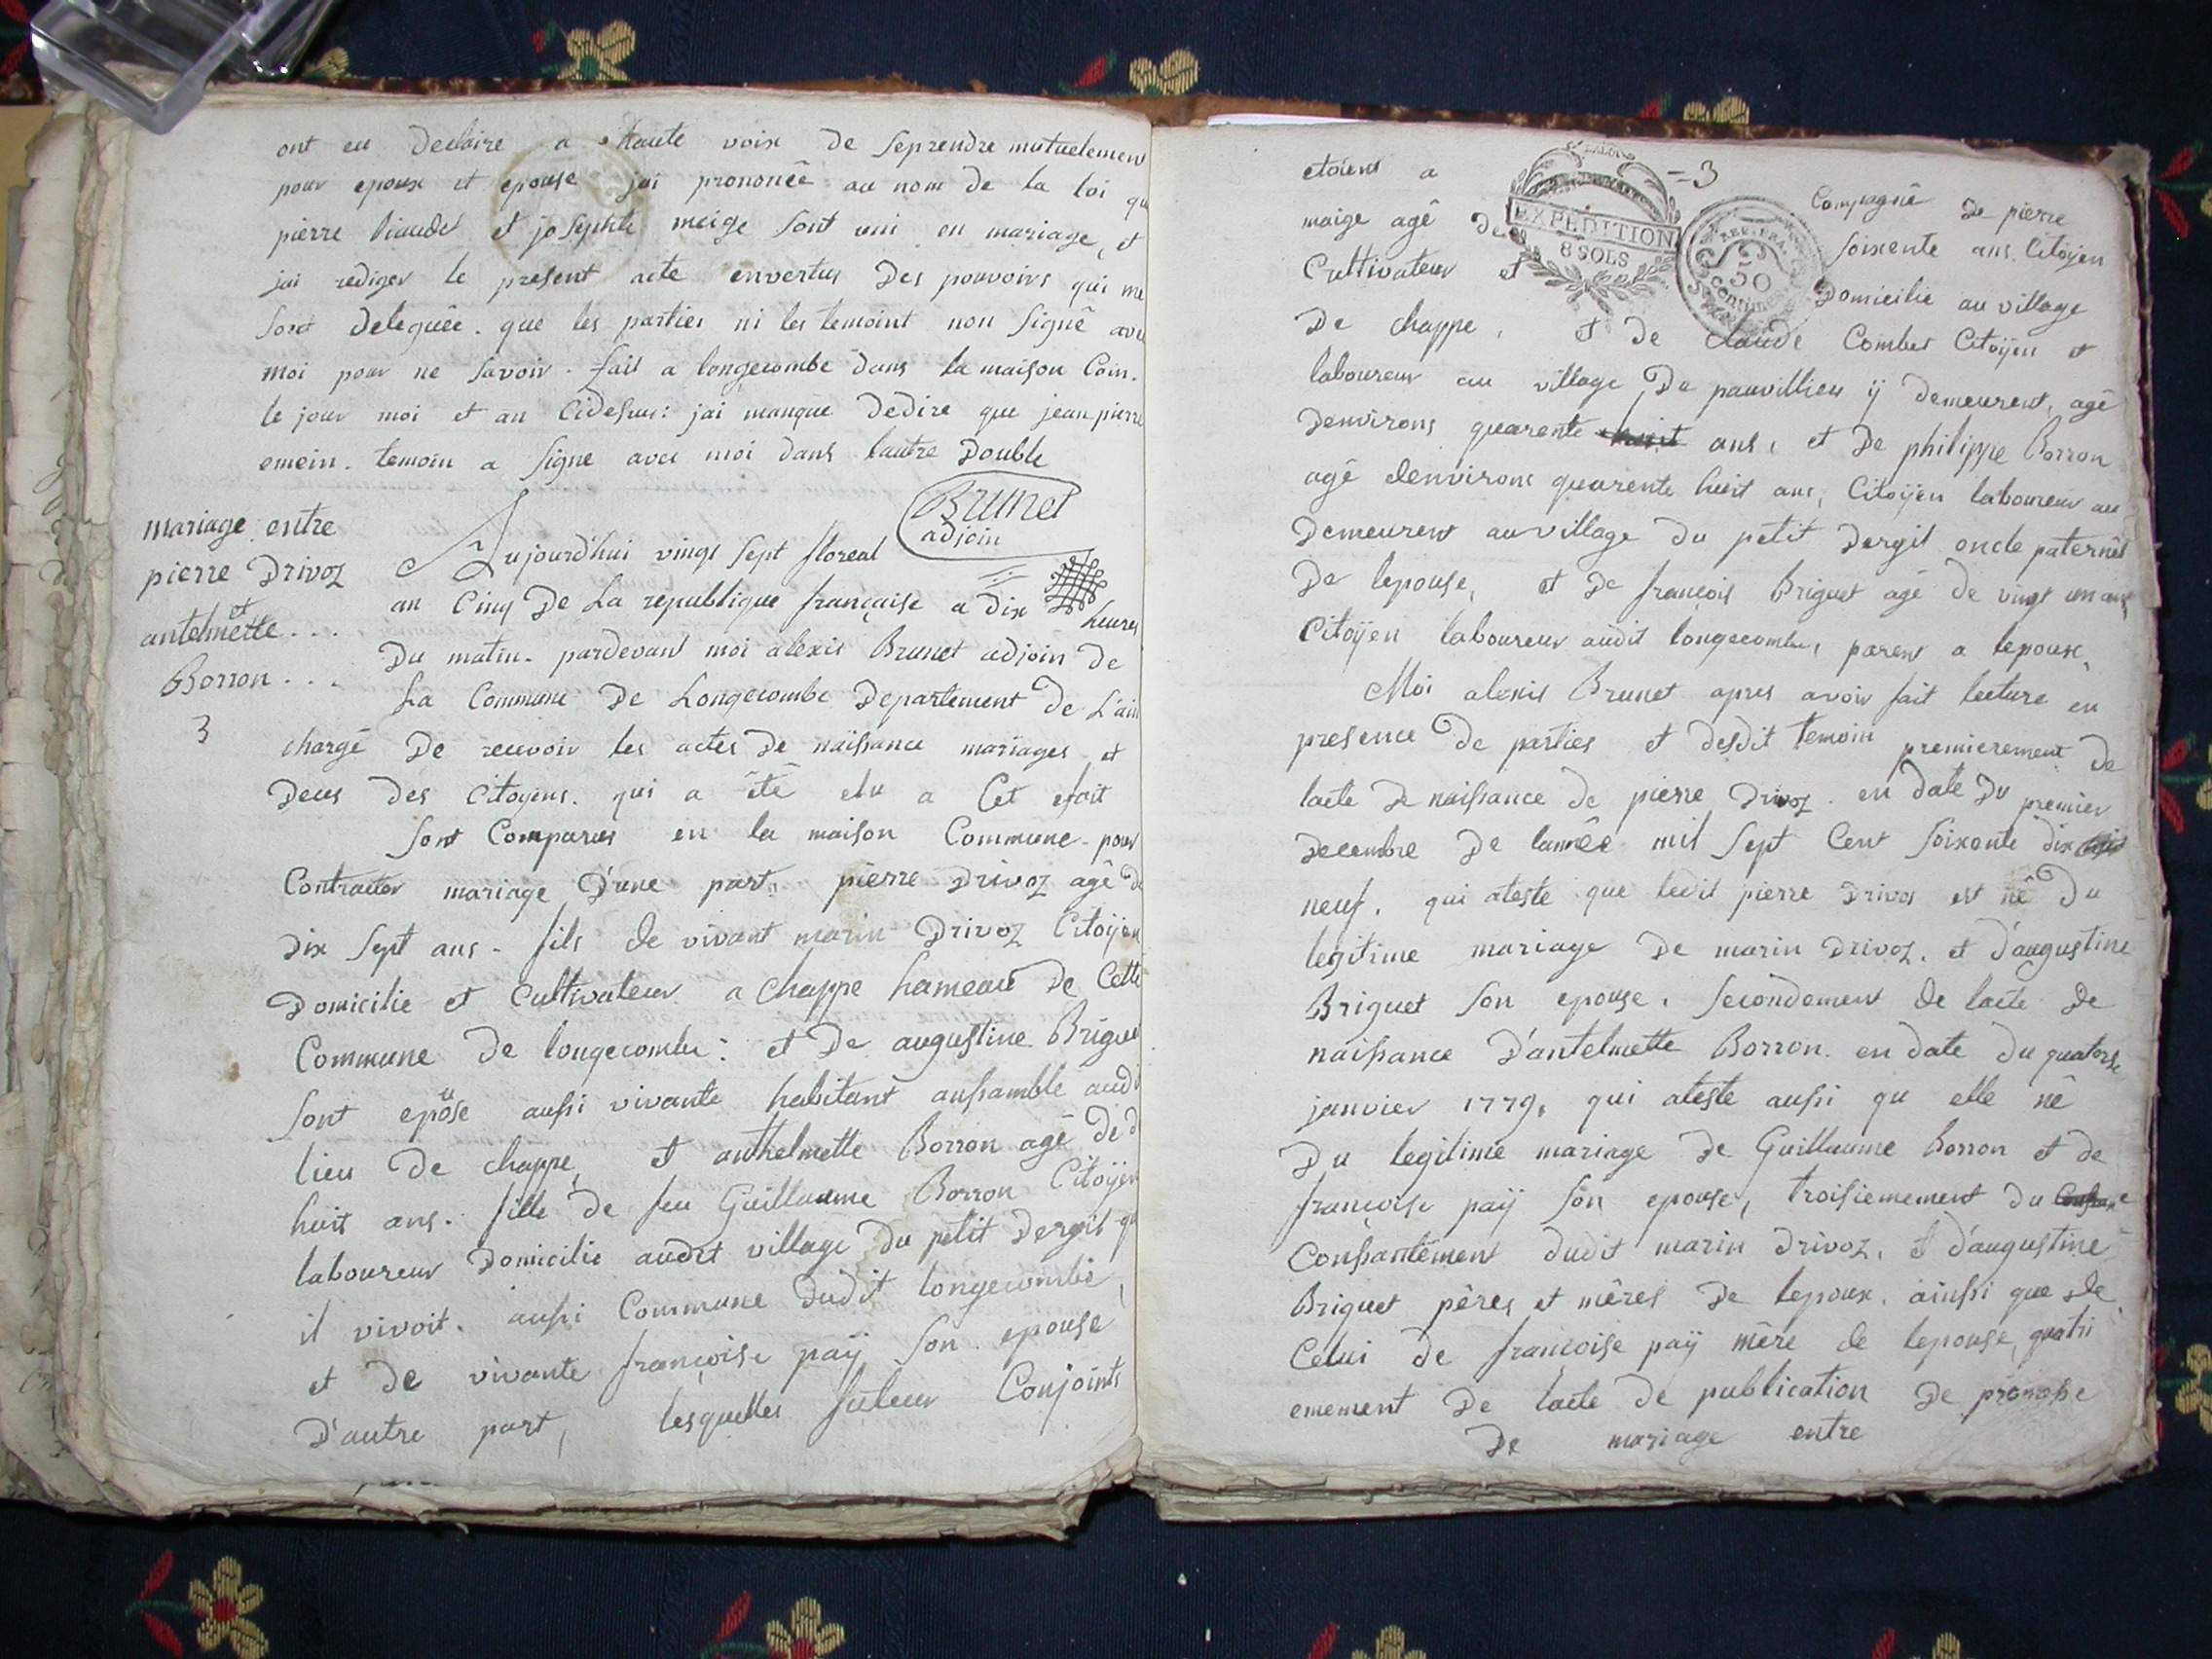 ont eu declaire a haute voix de seprendre mutuelement
pour epoux et epouse jai prononcê au nom de la loi qu
pierre et josephte meige sont uni en mariage, et
jai rediger le present acte envertus des pouvoirs qui me
sont deleguêe. que les parties ni les temoint non signê avec
moi pour ne savoir. fait a longecombe dans la maison Com.
le jour moi et an cidesus: jai manque dedire que jean pierre
emein. temoin a signe avec moi dans lautre double
Brunet
adjoin
mariage entre
pierre Drivoz
et
antelmette...
Borron...
3
Aujourd'hui vingt sept floreal
an Cinq de La republique française a dix heures
du matin. pardevant moi alexis Brunet adjoin de
La Commune de Longecombe departement de L'ain
chargé de recevoir les actes de naissance mariages et
deces des citoyens. qui a êtê elu a Cet efait
sont Comparus en la maison Commune pour
Contracter mariage d'une part, pierre Drivoz agê de
dix sept ans. fils de vivant marin Drivoz Citoÿen
domicilie et Cultivateur a chappe hameau de Cette
Commune de longecombe: et de augustine Briguet
sont epouse aussi vivante habitant anssamble audi
lieu de chappe, et anthelmette Borron agê de d
huit ans. fille de feu Guillaume Borron Citoÿen
laboureur domicilie audit village du petit dergit qu
il vivoit. aussi Commune dudit longecombe,
et de vivante françoise paÿ son epouse
d'autre part, lesquelles futeur Conjoints
etoient a Compagnê de pierre
-3
EXPEDITION
8 SOLS
50
centimes
maige agê de soixente ans. Citoÿen
Cultivateur et domicilie au village
de chappe, et de claude Combet Citoÿen et
laboureur au village de pauvillieu ÿ demeurent, agê
denvirons quarente huit ans, et de philippe Borron
agê denvirons quarente huit ans, Citoÿen laboureur au
demeurent au village du petit dergit oncle paternêl
de lepouse, et de françois Briguet agê de vingt un ans
Citoÿen laboureur audit longecombe, parent a lepoux.
Moi alexis Brunet apres avoir fait lecture en
presence de parties et desdit temoin premierement de
lacte de naissance de pierre Drivoz. en date du premier
decembre de lannêe mil sept Cent soixante dix
neuf. qui ateste que ledit pierre Drivos est nê du
legitime mariage de marin Drivoz. et d'augustine
Briguet son epouse. secondement de lacte de
naissance d'antelmette Borron. en date du quatorse
janvier 1779, qui ateste aussi qu elle nê
du legitime mariage de Guillaume Borron et de
françoise paÿ son epouse, troisiemement du
Conssantement dudit marin Drivoz. et d'augustine
Briguet pêres et mêres de lepoux. ainssi que de
Celui de françoise paÿ mêre de lepouse, quatri
emement de lacte de publication de promesse
de mariage entre